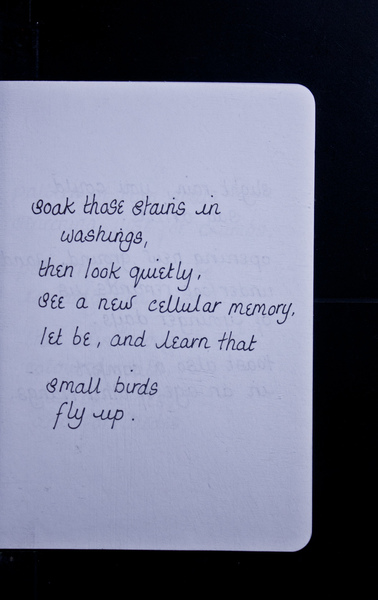 soak those stains in
washings,
then look quietly,
see a new cellular memory,
let be, and learn that
small birds
fly up.